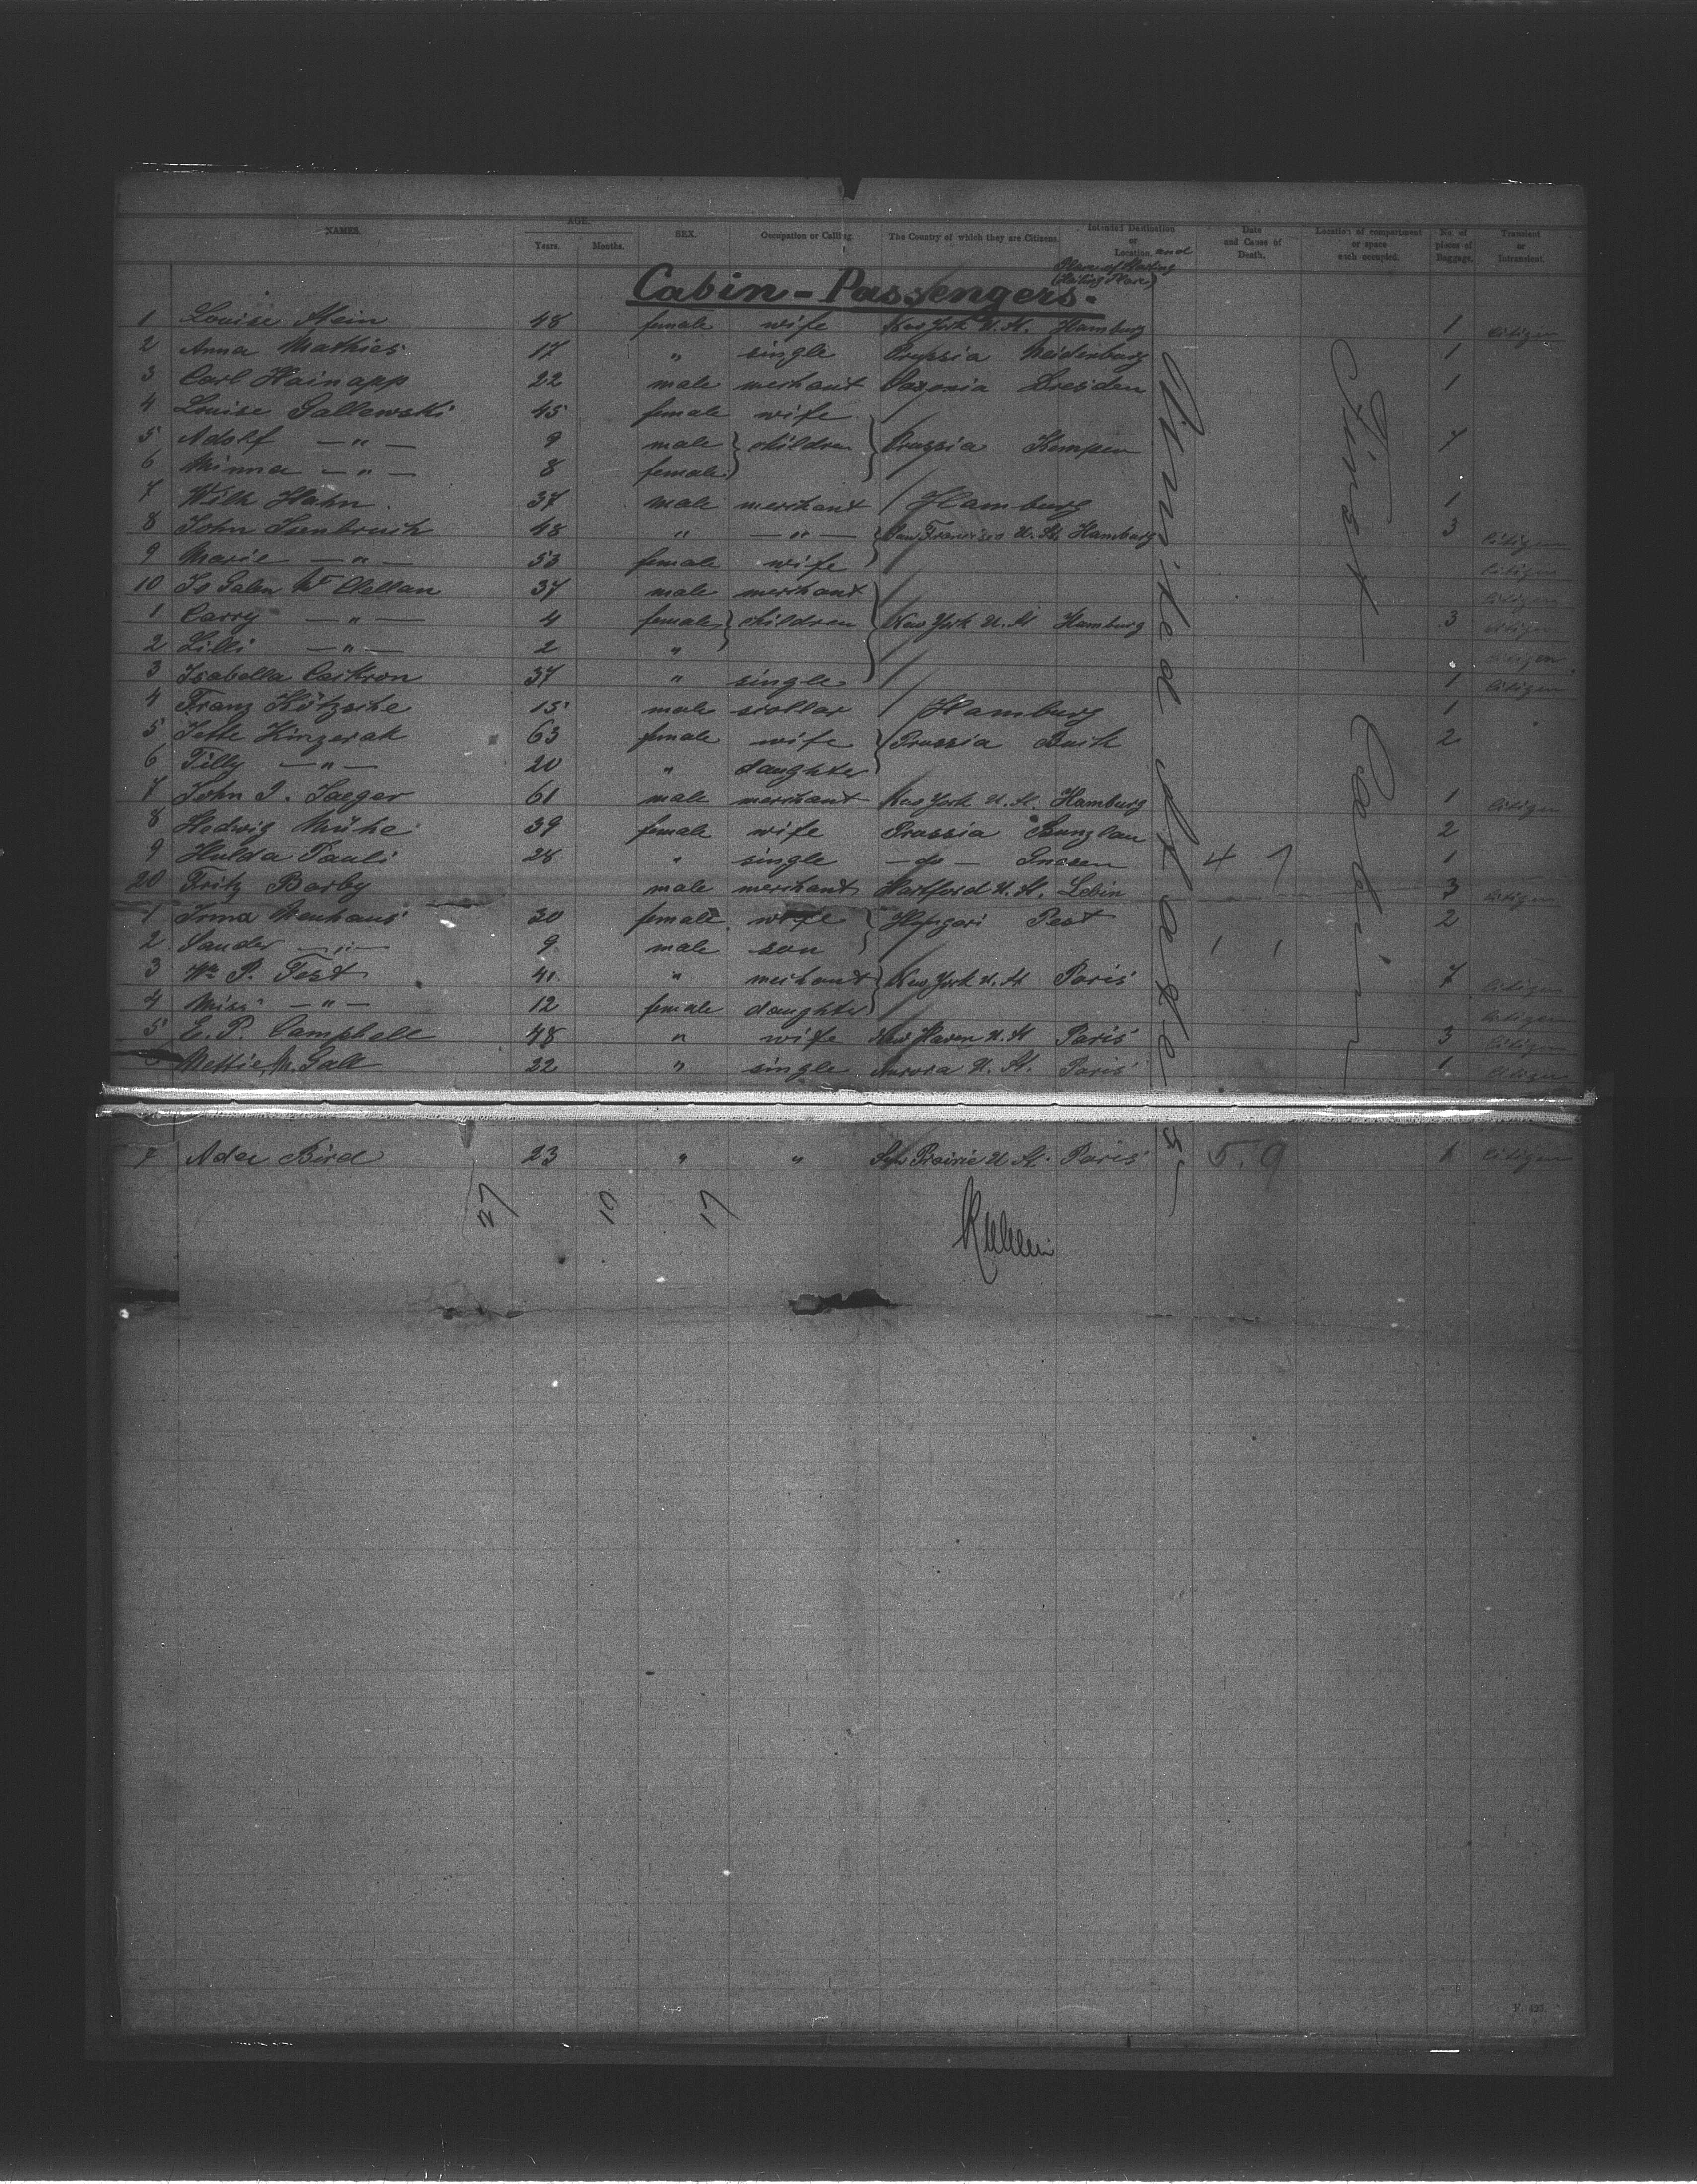 NAMES. AGE. Years. Months. SEX. Occupation or Calling. The Country of which they are Citizens. Intended Destination or Location, and Place of Starting (Starting Place) Date and Cause of Death. Location of compartment or space each occupied. No. of pieces of Baggage. Transient or Intransient.
Cabin-Passengers.
1 Louise Stein 48 female wife New York U. St. Hamburg 1 citizen
2 Anna Mathies 17 " single Prussia Neidenburg 1
3 Carl Hainapp 22 male merchant Saxonia Dresden 1
4 Louise Sallewski 45 female wife
5 Adolf — " — 9 male } children } Prussia Kempen 7
6 Minna — " — 8 female
7 Wilh Hahn 37 male merchant Hamburg 1
8 John Isenbruch 48 " — " — San Francisco U. St. Hamburg 3 citizen
9 Marie — " — 53 female wife citizen
10 Clellan 37 male merchant citizen
1 Carry — " — 4 female } children New York U. St Hamburg 3 citizen
2 Lilli — " — 2 " citizen
3 Isabella 37 " single 1 citizen
4 Franz Kötzsche 15 male Hamburg 1
5 Jette Kinzerak 63 female wife } Prussia 2
6 Tilly — " — 20 " daughter
7 John J. Jaeger 61 male merchant New York U. St. Hamburg 1 citizen
8 Hedwig Mühe 39 female wife Prussia Bunzlau 2
9 Hulda Pauli 28 " single — do — Gnesen 4 7 1
20 Fritz Barby male merchant Hartford U. St. 3 citizen
1 Irma Neuhaus 30 female wife } Hungari Pest 2
2 Sander — " — 9 male son 1 1
3 Wm P. Test 41 " merchant } New York U. St Paris 7 citizen
4 Miss — " — 12 female daughter citizen
5 E. P. Campbell 48 " wife New Haven U. St Paris 3 citizen
6 Nettie M. Galt 22 " single Aurora U. St. Paris 1 citizen
7 Ada Bird 23 " " Prairie U St. Paris 5. 9 1 citizen
United States
First Cabin
27 10 17
F. 425.